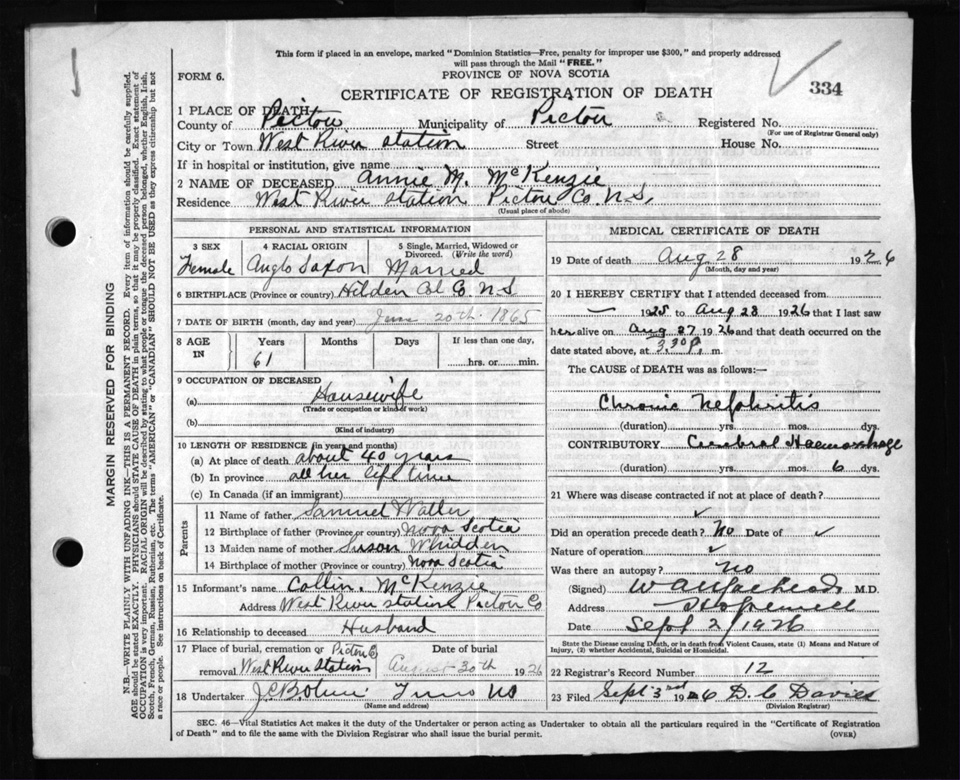 This form if placed in an envelope, marked "Dominion Statistics—Free, penalty for improper use $300," and properly addressed
will pass through the Mail "FREE."
FORM 6.
PROVINCE OF NOVA SCOTIA
CERTIFICATE OF REGISTRATION OF DEATH
334
1 PLACE OF DEATH
County of Pictou Municipality of Pictou Registered No.
(For use of Registrar General only)
City or Town West River Station Street House No.
If in hospital or institution, give name
2 NAME OF DECEASED Annie M. McKenzie
Residence West River Station Pictou Co. N.S.
(Usual place of abode)
PERSONAL AND STATISTICAL INFORMATION
3 SEX 4 RACIAL ORIGIN 5 Single, Married, Widowed or
Divorced. (Write the word)
Female Anglo Saxon Married
6 BIRTHPLACE (Province or country) Hilden Col Co. N S
7 DATE OF BIRTH (month, day and year) June 20th. 1865
8 AGE IN Years Months Days If less than one day,
61 hrs. or min.
9 OCCUPATION OF DECEASED
(a) Housewife
(Trade or occupation or kind of work)
(b)
(Kind of industry)
10 LENGTH OF RESIDENCE (in years and months)
(a) At place of death about 40 years
(b) In province all her life time
(c) In Canada (if an immigrant)
Parents
11 Name of father Samuel
12 Birthplace of father (Province or country) Nova Scotia
13 Maiden name of mother Susan Whidden
14 Birthplace of mother (Province or country) Nova Scotia
15 Informant's name Collin. McKenzie
Address West River Station Pictou Co
16 Relationship to deceased Husband
17 Place of burial, cremation or removal Pictou Co West River Station
Date of burial August 30th 1926
18 Undertaker
(Name and address)
MEDICAL CERTIFICATE OF DEATH
19 Date of death Aug 28 1926
(Month, day and year)
20 I HEREBY CERTIFY that I attended deceased from
— 1925 to Aug 28 1926 that I last saw
her alive on Aug 27 1926 and that death occurred on
date stated above, at 3.30 P. m.
The CAUSE of DEATH was as follows:—
Chronic Nephritis
(duration) yrs. mos. dys.
CONTRIBUTORY Cerebral Haemorrhage
(duration) yrs. mos. 6 dys.
21 Where was disease contracted if not at place of death?
Did an operation precede death? No Date of
Nature of operation
Was there an autopsy? No
(Signed) M.D.
Address Hopewell
Date Sept 2/1926
State the Disease causing Death, or in death from Violent Causes, state (1) Means and Nature of
Injury, (2) whether Accidental, Suicidal or Homicidal.
22 Registrar's Record Number 12
23 Filed Sept 3rd 1926 D. C Davies
(Division Registrar)
SEC. 46—Vital Statistics Act makes it the duty of the Undertaker or person acting as Undertaker to obtain all the particulars required in the "Certificate of Registration
of Death" and to file the same with the Division Registrar who shall issue the burial permit.
(OVER)
MARGIN RESERVED FOR BINDING
N.B.—WRITE PLAINLY WITH UNFADING INK—THIS IS A PERMANENT RECORD. Every item of information should be carefully supplied.
AGE should be stated EXACTLY. PHYSICIANS should STATE CAUSE OF DEATH in plain terms, so that it may be properly classified. Exact statement of
OCCUPATION is very important. RACIAL ORIGIN will be described by stating to what people or tongue the deceased person belonged, whether English, Irish,
Scotch, French, German, Russian, Ruthenian, etc. The terms "AMERICAN" or "CANADIAN" SHOULD NOT BE USED as they express citizenship but not
a race or people. See instructions on back of Certificate.